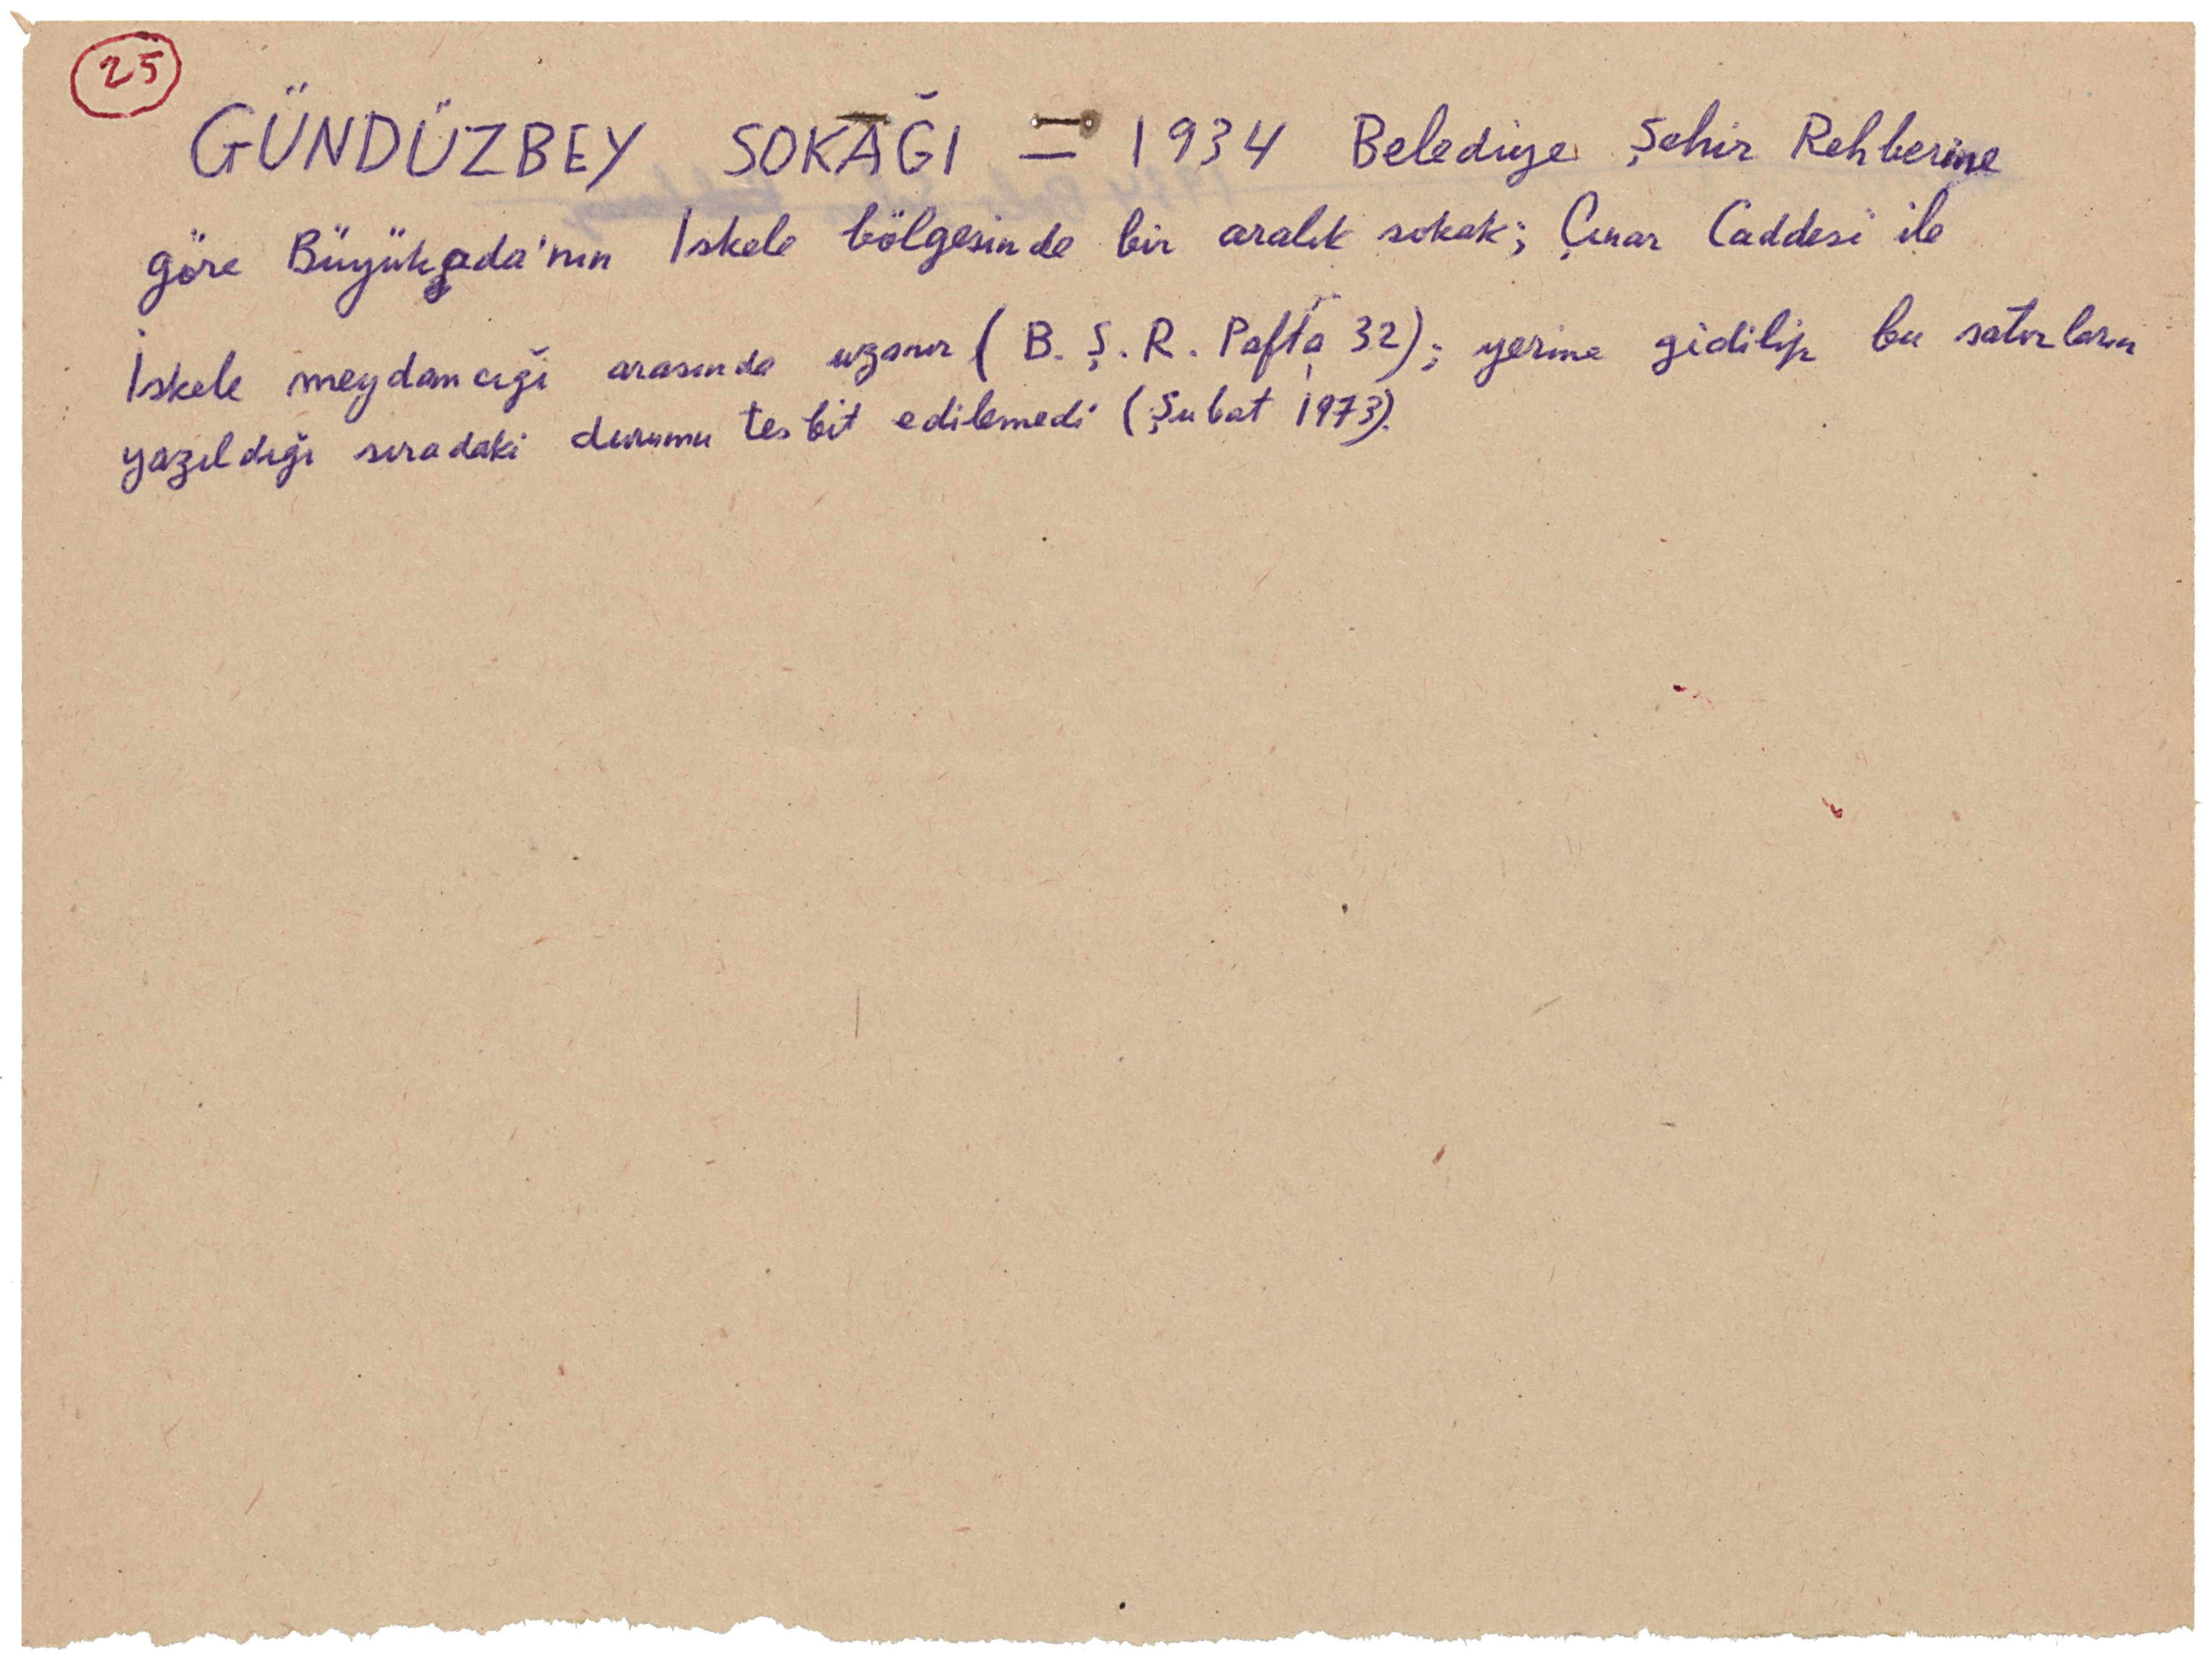 25
GÜNDÜZBEY SOKAĞI — 1934 Belediye Şehir Rehberine
göre Büyükada'nın İskele bölgesinde bir aralık sokak; Çınar Caddesi ile
İskele meydancığı arasında uzanır (B. Ş. R. Pafta 32); yerine gidilip bu satırların
yazıldığı sıradaki durumu tesbit edilemedi (Şubat 1973).